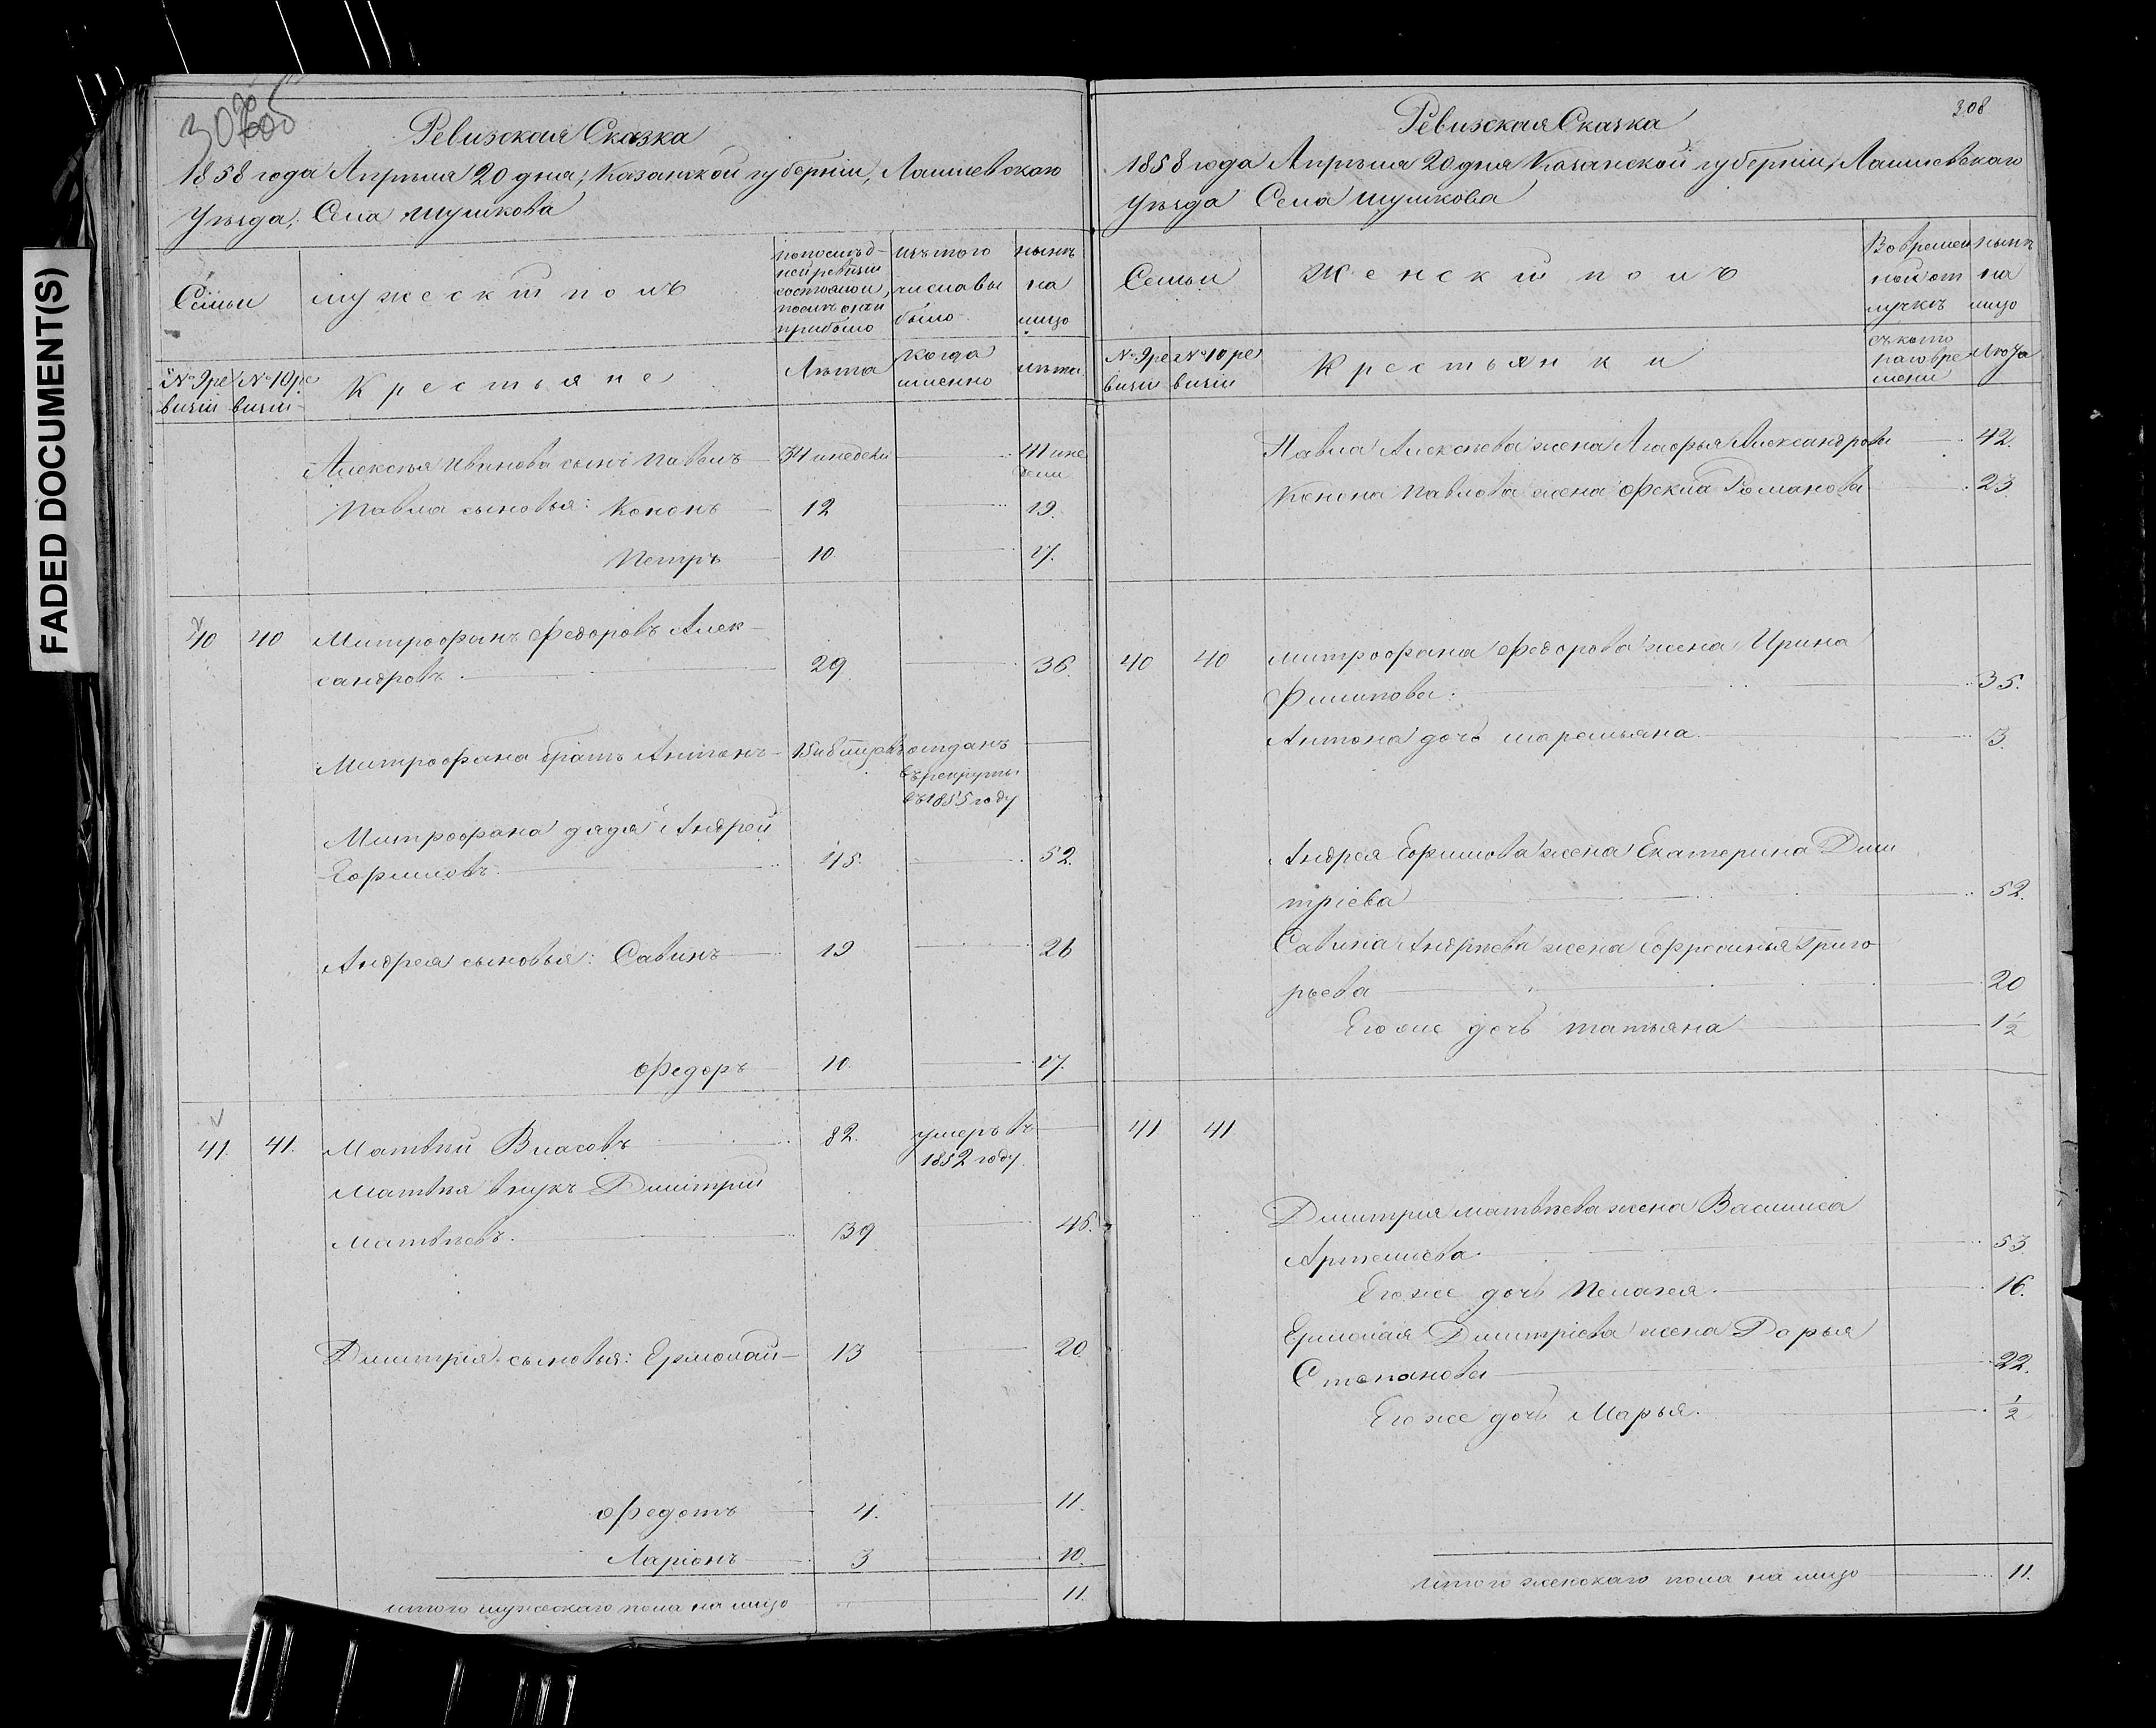 FADED DOCUMENT(S)
Ревизская Сказка
1858 года Апрѣля 20 дня, Казанской губерніи, Лаишевскаго
Уѣзда, Села Шушкова
Семьи
мужескій полъ
по послѣд-
ней ревизіи
состояло и
послѣ оной
прибыло
изъ того
числа вы
было
нынѣ
на
лицо
№ 9 ре
визіи
№ 10 ре
визіи
Крестьяне
Лѣта
когда
именно
лѣта
Алексѣя Иванова сынъ Павелъ
Павла сыновья: Кононъ 12 19.
Петръ 10 17.
40 40 Митрофанъ Федоровъ Алек-
сандровъ. 29 36.
Митрофана братъ Антонъ отданъ
въ рекруты
въ 1855 году
Митрофана дядя Андрей
Ефимовъ. 45. 52.
Андрея сыновья: Савинъ 19 26
Федоръ 10 17.
41. 41. Матвѣй Власовъ 82. умеръ въ
1852 году.
Матвѣя внукъ Дмитрій
Матвѣевъ. 39 46.
Дмитрія сыновья: Ермолай 13 20
Федотъ 4. 11.
Ларіонъ 3 10.
итого мужескаго пола на лицо 11.
308
Ревизская Сказка
1858 года Апрѣля 20 дня Казанской губерніи, Лаишевскаго
Уѣзда Села Шушкова
Семьи
Женскій полъ
Во времен
ной от
лучкѣ
нынѣ
на
лицо
№ 9 ре
визіи
№ 10 ре
визіи
Крестьянки
съ кото
раго вре
мени
лѣта
Павла Алексѣева жена Агафья Александрова 42.
Конона Павлова жена Фекла Романова 23
40 40 Митрофана Федорова жена Ирина
Филипова. 35.
Антона дочь Маремьяна. 3.
Андрея Ефимова жена Екатерина Дми
тріева 52.
Савина Андрѣева жена Ефросинья Григо
рьева 20
Его же дочь Татьяна 1½
41 41
Дмитрія Матвѣева жена Василиса
Артемьева 53
Его же дочь Пелагея. 16.
Ермолая Дмитріева жена Дарья
Степанова 22.
Его же дочь Марья. ½
итого женскаго пола на лицо 11.